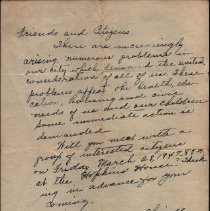 Friends and Citizens
There are increasingly
arising, numerous problems in
our city which demand the united
consideration of all of us. These
problems affect the health, edu-
cation, housing and civic
needs of us and our children.
Some immediate action is
demanded.
Will you meet with a
group of interested citizens
on Friday, March 28, 1945,
at the Hopkins House. Thank-
ing in advance for your
coming.